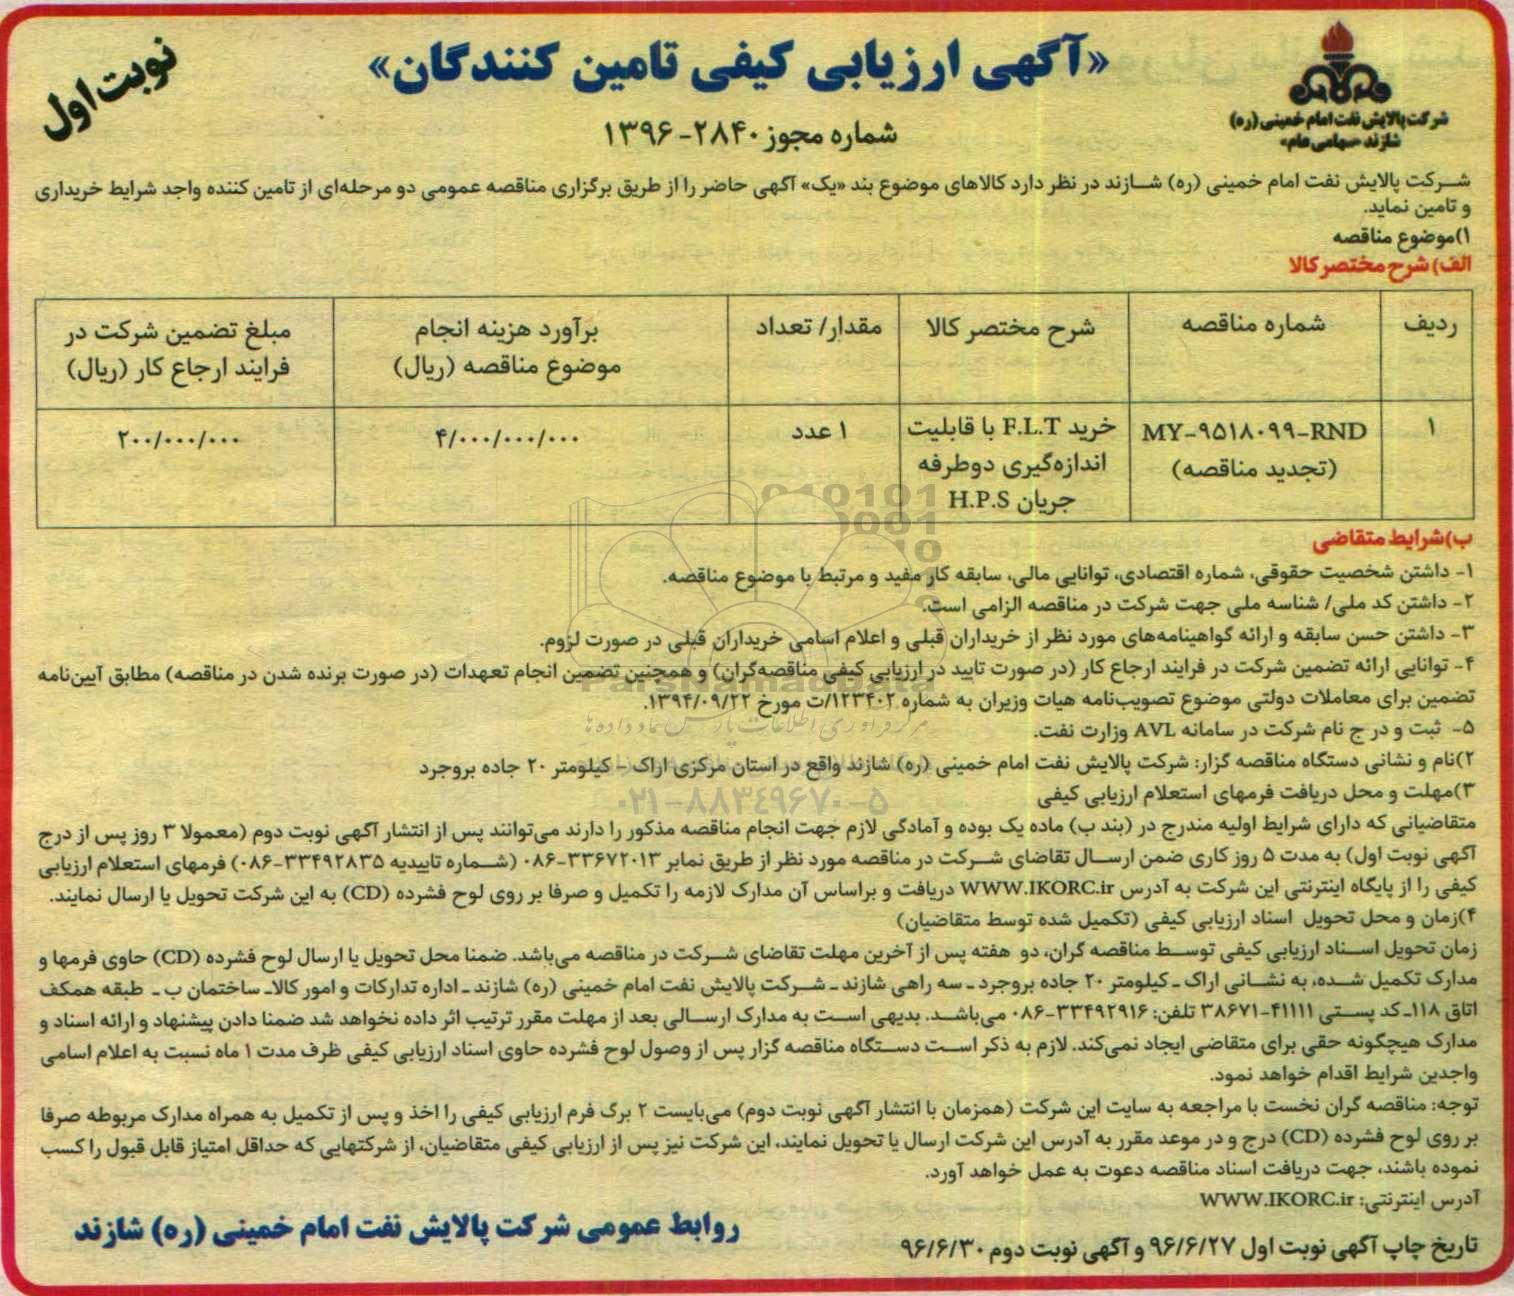 «آگهی ارزیابی کیفی تامین کنندگان»
نوبت اول
شرکت پالایش نفت امام خمینی (ره)
شازند «سهامی عام»
شماره مجوز ۲۸۴۰-۱۳۹۶
شرکت پالایش نفت امام خمینی (ره) شازند در نظر دارد کالاهای موضوع بند «یک» آگهی حاضر را از طریق برگزاری مناقصه عمومی دو مرحله‌ای از تامین کننده واجد شرایط خریداری
و تامین نماید.
۱)موضوع مناقصه
الف) شرح مختصر کالا
ردیف | شماره مناقصه | شرح مختصر کالا | مقدار/ تعداد | برآورد هزینه انجام موضوع مناقصه (ریال) | مبلغ تضمین شرکت در فرایند ارجاع کار (ریال)
۱ | MY-۹۵۱۸۰۹۹-RND (تجدید مناقصه) | خرید F.L.T با قابلیت اندازه‌گیری دوطرفه جریان H.P.S | ۱ عدد | ۴/۰۰۰/۰۰۰/۰۰۰ | ۲۰۰/۰۰۰/۰۰۰
ب)شرایط متقاضی
۱- داشتن شخصیت حقوقی، شماره اقتصادی، توانایی مالی، سابقه کار مفید و مرتبط با موضوع مناقصه.
۲- داشتن کد ملی/ شناسه ملی جهت شرکت در مناقصه الزامی است.
۳- داشتن حسن سابقه و ارائه گواهینامه‌های مورد نظر از خریداران قبلی و اعلام اسامی خریداران قبلی در صورت لزوم.
۴- توانایی ارائه تضمین شرکت در فرایند ارجاع کار (در صورت تایید در ارزیابی کیفی مناقصه‌گران) و همچنین تضمین انجام تعهدات (در صورت برنده شدن در مناقصه) مطابق آیین‌نامه
تضمین برای معاملات دولتی موضوع تصویب‌نامه هیات وزیران به شماره ۱۲۳۴۰۲/ت مورخ ۱۳۹۴/۰۹/۲۲.
۵- ثبت و در ج نام شرکت در سامانه AVL وزارت نفت.
۲)نام و نشانی دستگاه مناقصه گزار: شرکت پالایش نفت امام خمینی (ره) شازند واقع در استان مرکزی اراک - کیلومتر ۲۰ جاده بروجرد
۰۲۱-۸۸۳۴۹۶۷۰-۵
۳)مهلت و محل دریافت فرمهای استعلام ارزیابی کیفی
متقاضیانی که دارای شرایط اولیه مندرج در (بند ب) ماده یک بوده و آمادگی لازم جهت انجام مناقصه مذکور را دارند می‌توانند پس از انتشار آگهی نوبت دوم (معمولا ۳ روز پس از درج
آگهی نوبت اول) به مدت ۵ روز کاری ضمن ارسال تقاضای شرکت در مناقصه مورد نظر از طریق نمابر ۳۳۶۷۲۰۱۳-۰۸۶ (شماره تاییدیه ۳۳۴۹۲۸۳۵-۰۸۶) فرمهای استعلام ارزیابی
کیفی را از پایگاه اینترنتی این شرکت به آدرس WWW.IKORC.ir دریافت و براساس آن مدارک لازمه را تکمیل و صرفا بر روی لوح فشرده (CD) به این شرکت تحویل یا ارسال نمایند.
۴)زمان و محل تحویل اسناد ارزیابی کیفی (تکمیل شده توسط متقاضیان)
زمان تحویل اسناد ارزیابی کیفی توسط مناقصه گران، دو هفته پس از آخرین مهلت تقاضای شرکت در مناقصه می‌باشد. ضمنا محل تحویل یا ارسال لوح فشرده (CD) حاوی فرمها و
مدارک تکمیل شده، به نشانی اراک ـ کیلومتر ۲۰ جاده بروجرد ـ سه راهی شازند ـ شرکت پالایش نفت امام خمینی (ره) شازند ـ اداره تدارکات و امور کالاـ ساختمان ب ـ طبقه همکف
اتاق ۱۱۸ـ کد پستی ۴۱۱۱۱-۳۸۶۷۱ تلفن: ۳۳۴۹۲۹۱۶-۰۸۶ می‌باشد. بدیهی است به مدارک ارسالی بعد از مهلت مقرر ترتیب اثر داده نخواهد شد ضمنا دادن پیشنهاد و ارائه اسناد و
مدارک هیچگونه حقی برای متقاضی ایجاد نمی‌کند. لازم به ذکر است دستگاه مناقصه گزار پس از وصول لوح فشرده حاوی اسناد ارزیابی کیفی ظرف مدت ۱ ماه نسبت به اعلام اسامی
واجدین شرایط اقدام خواهد نمود.
توجه: مناقصه گران نخست با مراجعه به سایت این شرکت (همزمان با انتشار آگهی نوبت دوم) می‌بایست ۲ برگ فرم ارزیابی کیفی را اخذ و پس از تکمیل به همراه مدارک مربوطه صرفا
بر روی لوح فشرده (CD) درج و در موعد مقرر به آدرس این شرکت ارسال یا تحویل نمایند، این شرکت نیز پس از ارزیابی کیفی متقاضیان، از شرکتهایی که حداقل امتیاز قابل قبول را کسب
نموده باشند، جهت دریافت اسناد مناقصه دعوت به عمل خواهد آورد.
آدرس اینترنتی: WWW.IKORC.ir
تاریخ چاپ آگهی نوبت اول ۹۶/۶/۲۷ و آگهی نوبت دوم ۹۶/۶/۳۰
روابط عمومی شرکت پالایش نفت امام خمینی (ره) شازند